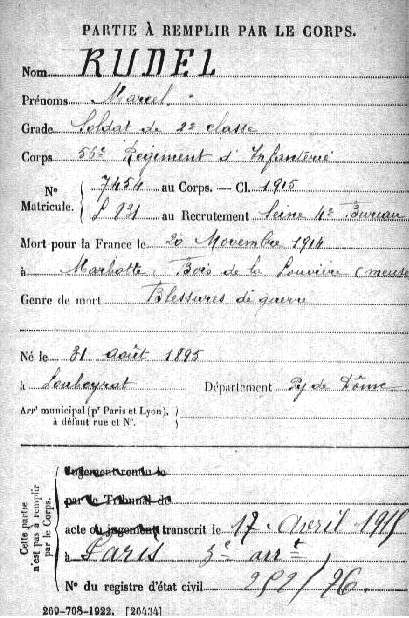 PARTIE À REMPLIR PAR LE CORPS.
Nom RUDEL
Prénoms Marcel
Grade Soldat de 2e classe
Corps 55e Régiment d'Infanterie
N° Matricule. 7454 au Corps. — Cl. 1915
au Recrutement Seine 4e Bureau
Mort pour la France le 20 Novembre 1914
à Marbotte Bois de la Louvière (Meuse
Genre de mort Blessures de guerre
Né le 31 août 1895
à Loubeyrat Département Puy de Dôme
Arrt municipal (pr Paris et Lyon), à défaut rue et N°.
Cette partie n'est pas à remplir par le Corps.
Jugement rendu le
par le Tribunal de
acte ou jugement transcrit le 17 avril 1915
à Paris 3e arrt
N° du registre d'état civil 252/76.
260-708-1922. [26434]